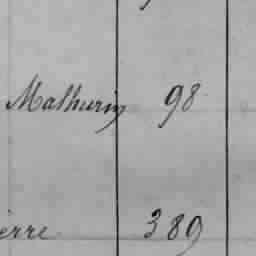 Mathurin 98
ierre 389